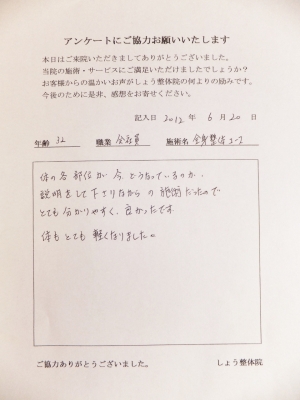 アンケートにご協力お願いいたします
本日はご来院いただきましてありがとうございました。
当院の施術・サービスにご満足いただけましたでしょうか?
お客様からの温かいお声がしょう整体院の何よりの励みです。
今後のために是非、感想をお寄せください。
記入日 2012 年 6 月 20 日
年齢 32 職業 会社員 施術名 全身整体コース
体の各部位が今どうなっているのか、
説明をして下さりながらの施術だったので
とても分かりやすく、良かったです。
体もとても軽くなりました。
ご協力ありがとうございました。 しょう整体院